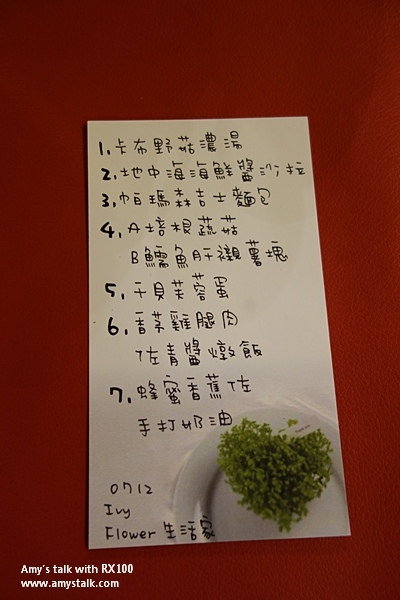 1. 卡布野菇濃湯
2. 地中海海鮮醬沙拉
3. 帕瑪森吉士麵包
4. A培根蔬菇
B鱈魚肝襯薯塊
5. 干貝芙蓉蛋
6. 香茅雞腿肉
佐青醬燉飯
7. 蜂蜜香蕉佐
手打奶油
0712
Ivy
Flower 生活家
Amy's talk with RX100
www.amystalk.com